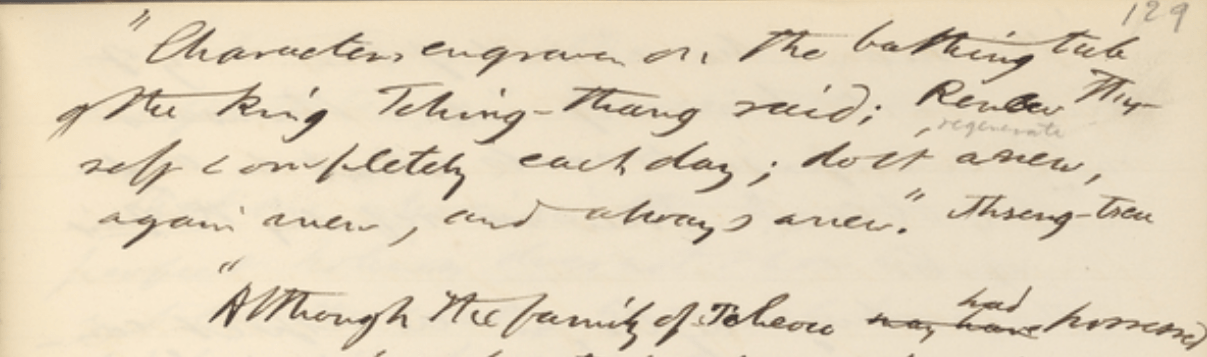 129
"Characters engraven on the bathing tub
of the king Tching-thang said; Renew thy-
regenerate
self completely each day; do it anew,
again anew, and always anew." Thseng-tseu
had
"Although the family of Tcheou may have possessed